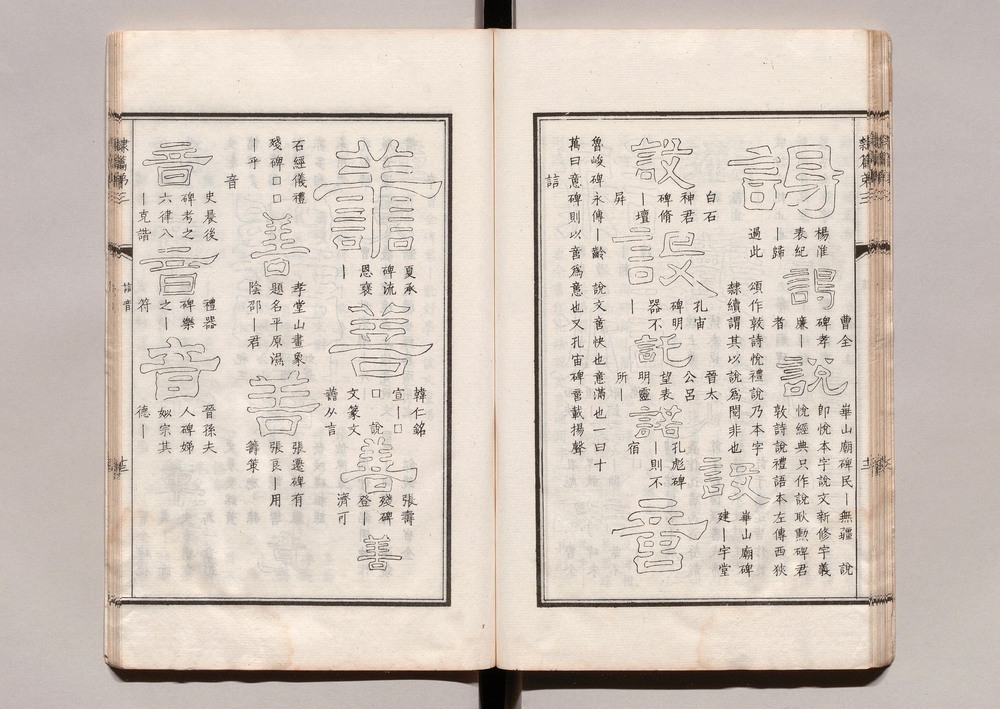 隸篇弟三
謁
楊淮
表紀
ー歸
過此
謁
曹全
碑孝
廉ー
者
說
華山廟碑民ー無疆 說
卽悅本字說文新修字義
悅經典只作說耿勳碑君
敦詩說禮語本左傳西狹
頌作敦詩悅禮說乃本字
隸續謂其以說爲閱非也
設
華山廟碑
建ー宇堂
設
白石
神君
碑脩
ー壇
屛
設
孔宙
碑明
器不
ー
託
晉太
公呂
望表
明靈
所ー
諾
孔彪碑
ー則不
宿
啻
魯峻碑永傳ー齡 說文啻快也意滿也一曰十
萬曰意碑則以啻爲意也又孔宙碑啻載揚聲
誩
譱
夏承
碑流
恩襃
ー
善
韓仁銘
宣ー□
□ 說
文篆文
譱从言
善
張壽
殘碑
登ー
濟可
善
石經儀禮
殘碑□□
ー乎
善
孝堂山畫象
題名平原濕
陰邵ー君
善
張遷碑有
張良ー用
籌策
音
音
史晨後
碑考之
六律八
ー克諧
音
禮器
碑樂
之ー
符
音
晉孫夫
人碑娣
姒宗其
德ー
隸篇弟三
誩音
十三